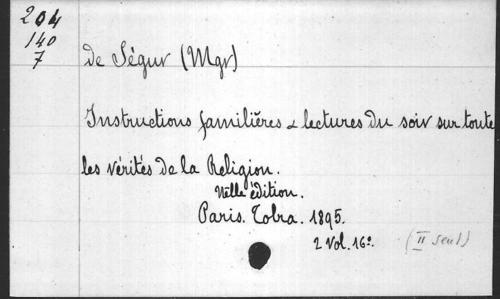 204
140
7
de Ségur (Mgr)
Instructions familières & lectures du soir sur toute
les vérités de la Religion.
Nelle édition.
Paris. Tolra. 1895.
2 Vol. 16º. (II seul)